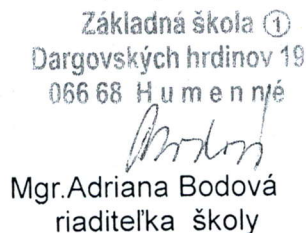 Základná škola ①
Dargovských hrdinov 19
066 68 Humenné
Mgr.Adriana Bodová
riaditeľka školy